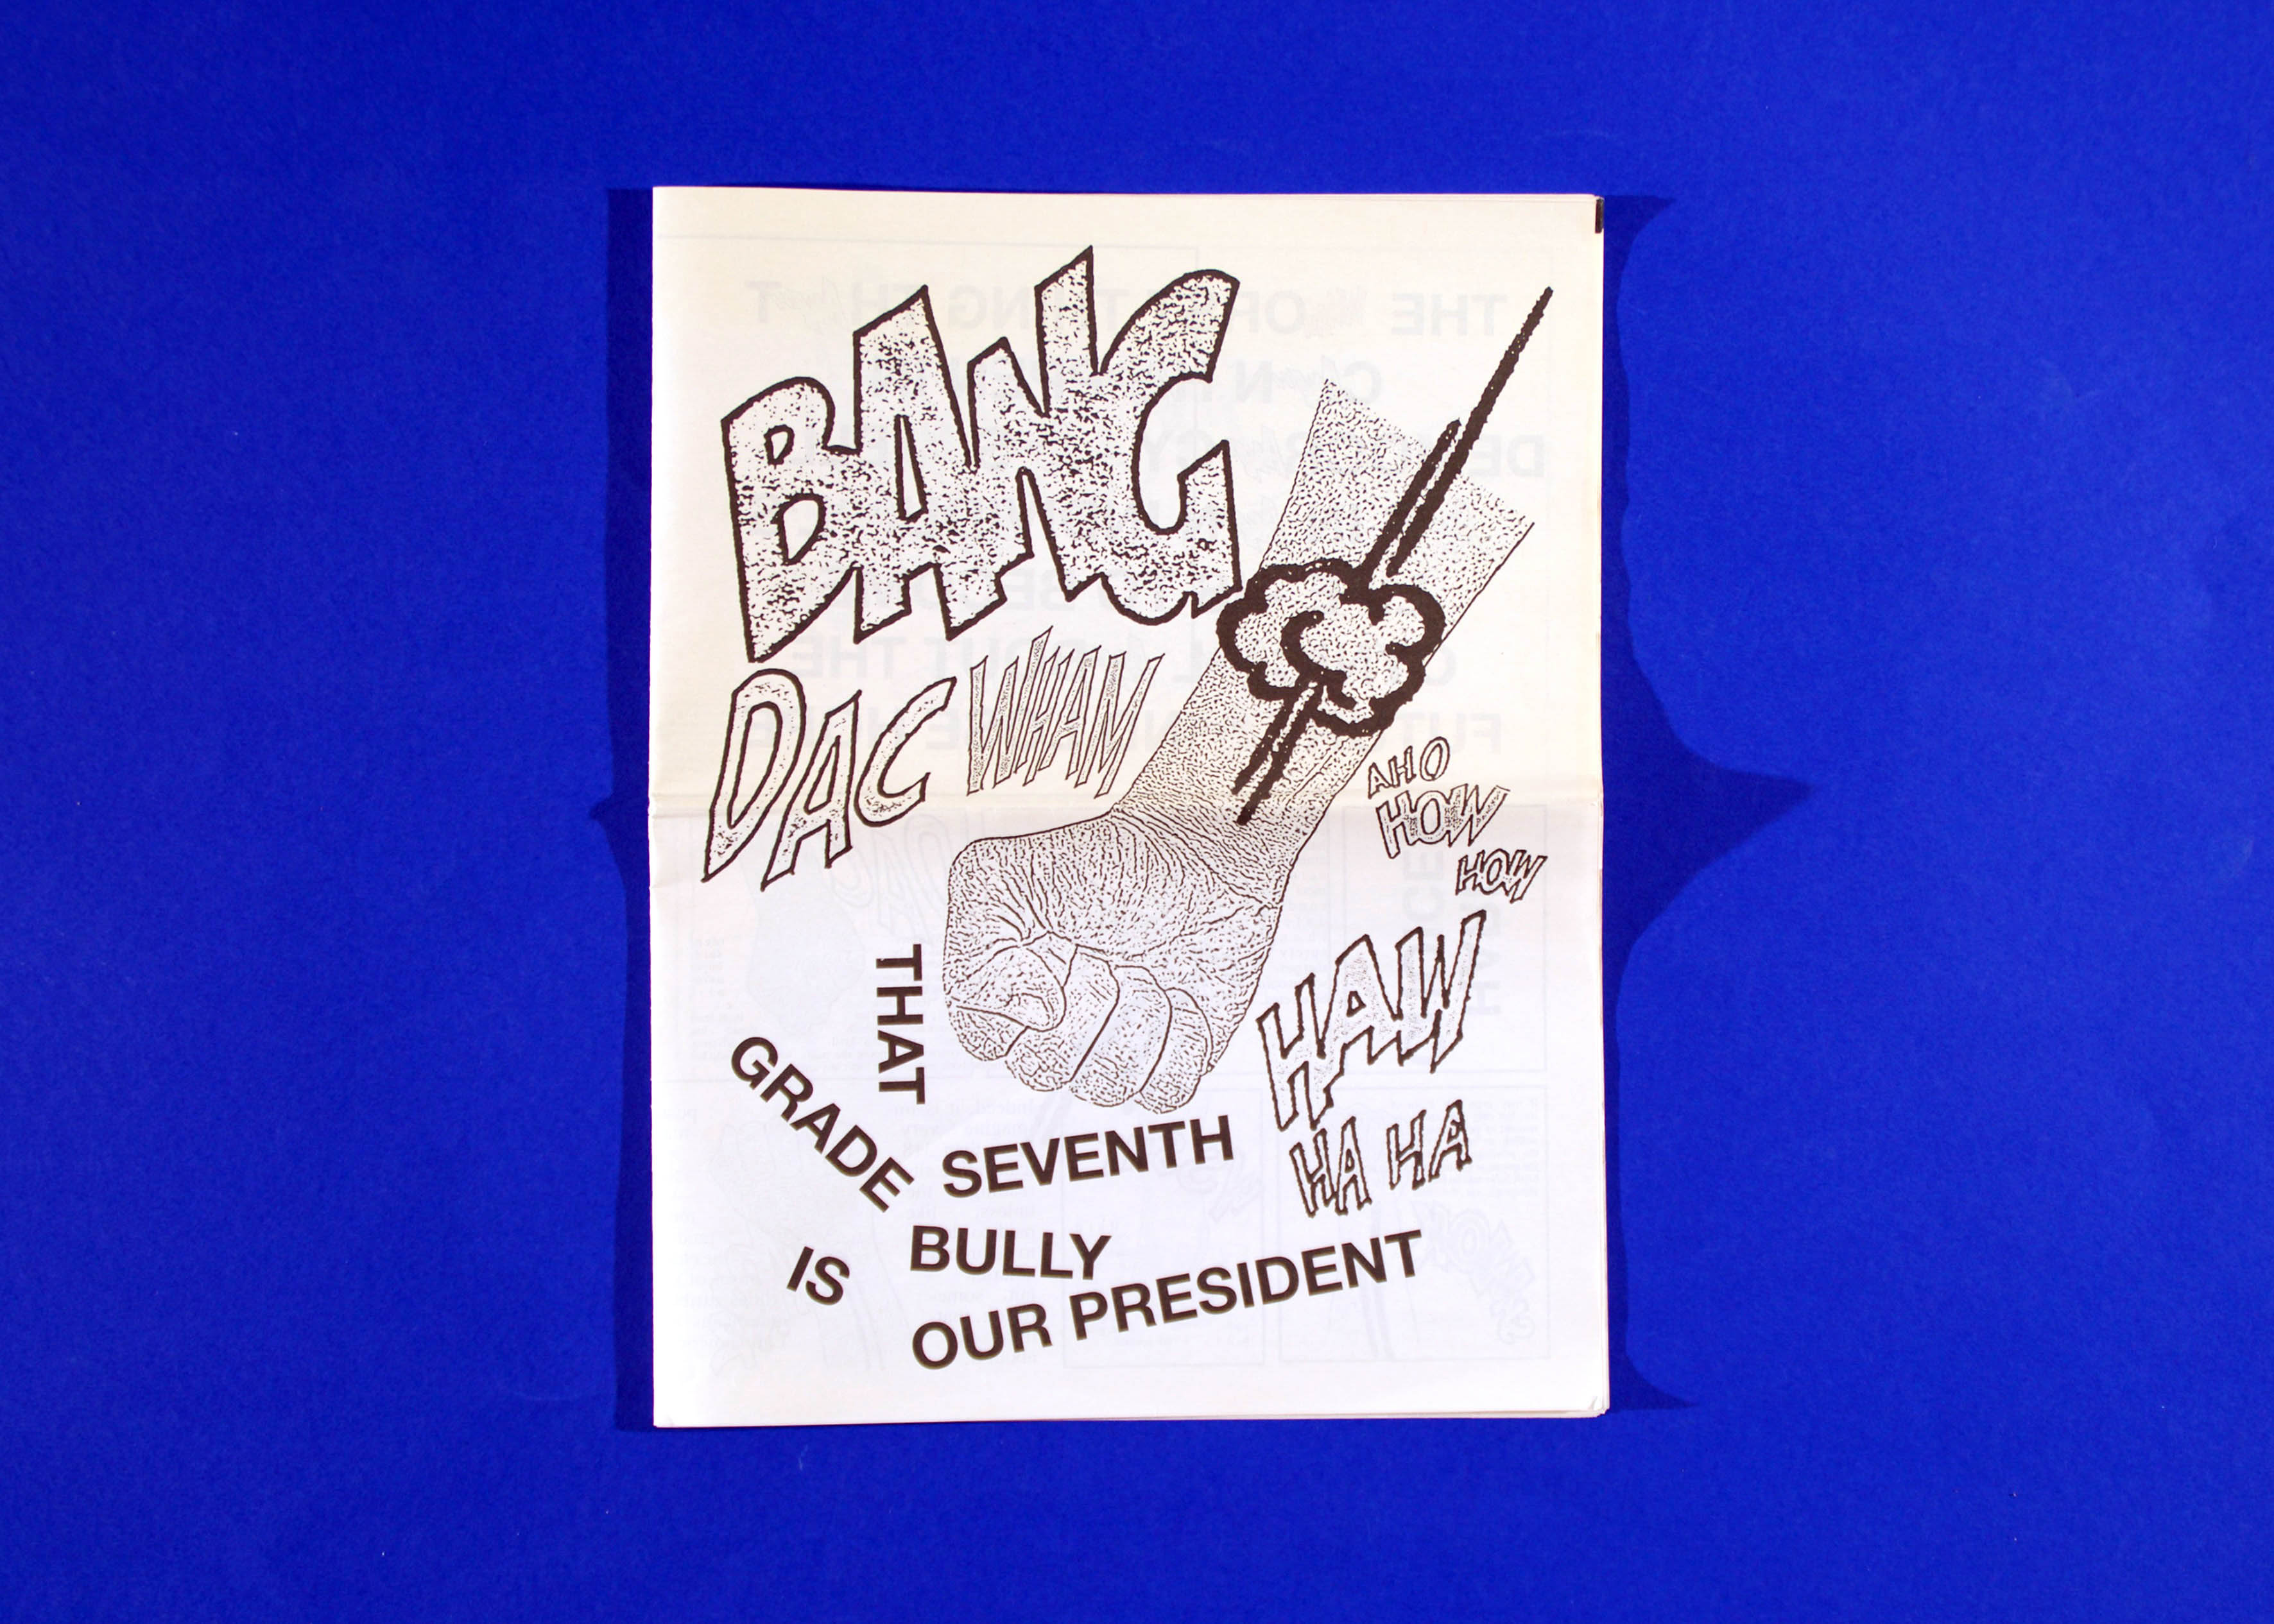 BANG
DAC WHAM
AHO
HOW
HOW
HAW
HA HA
THAT
SEVENTH
GRADE
BULLY
IS
OUR PRESIDENT